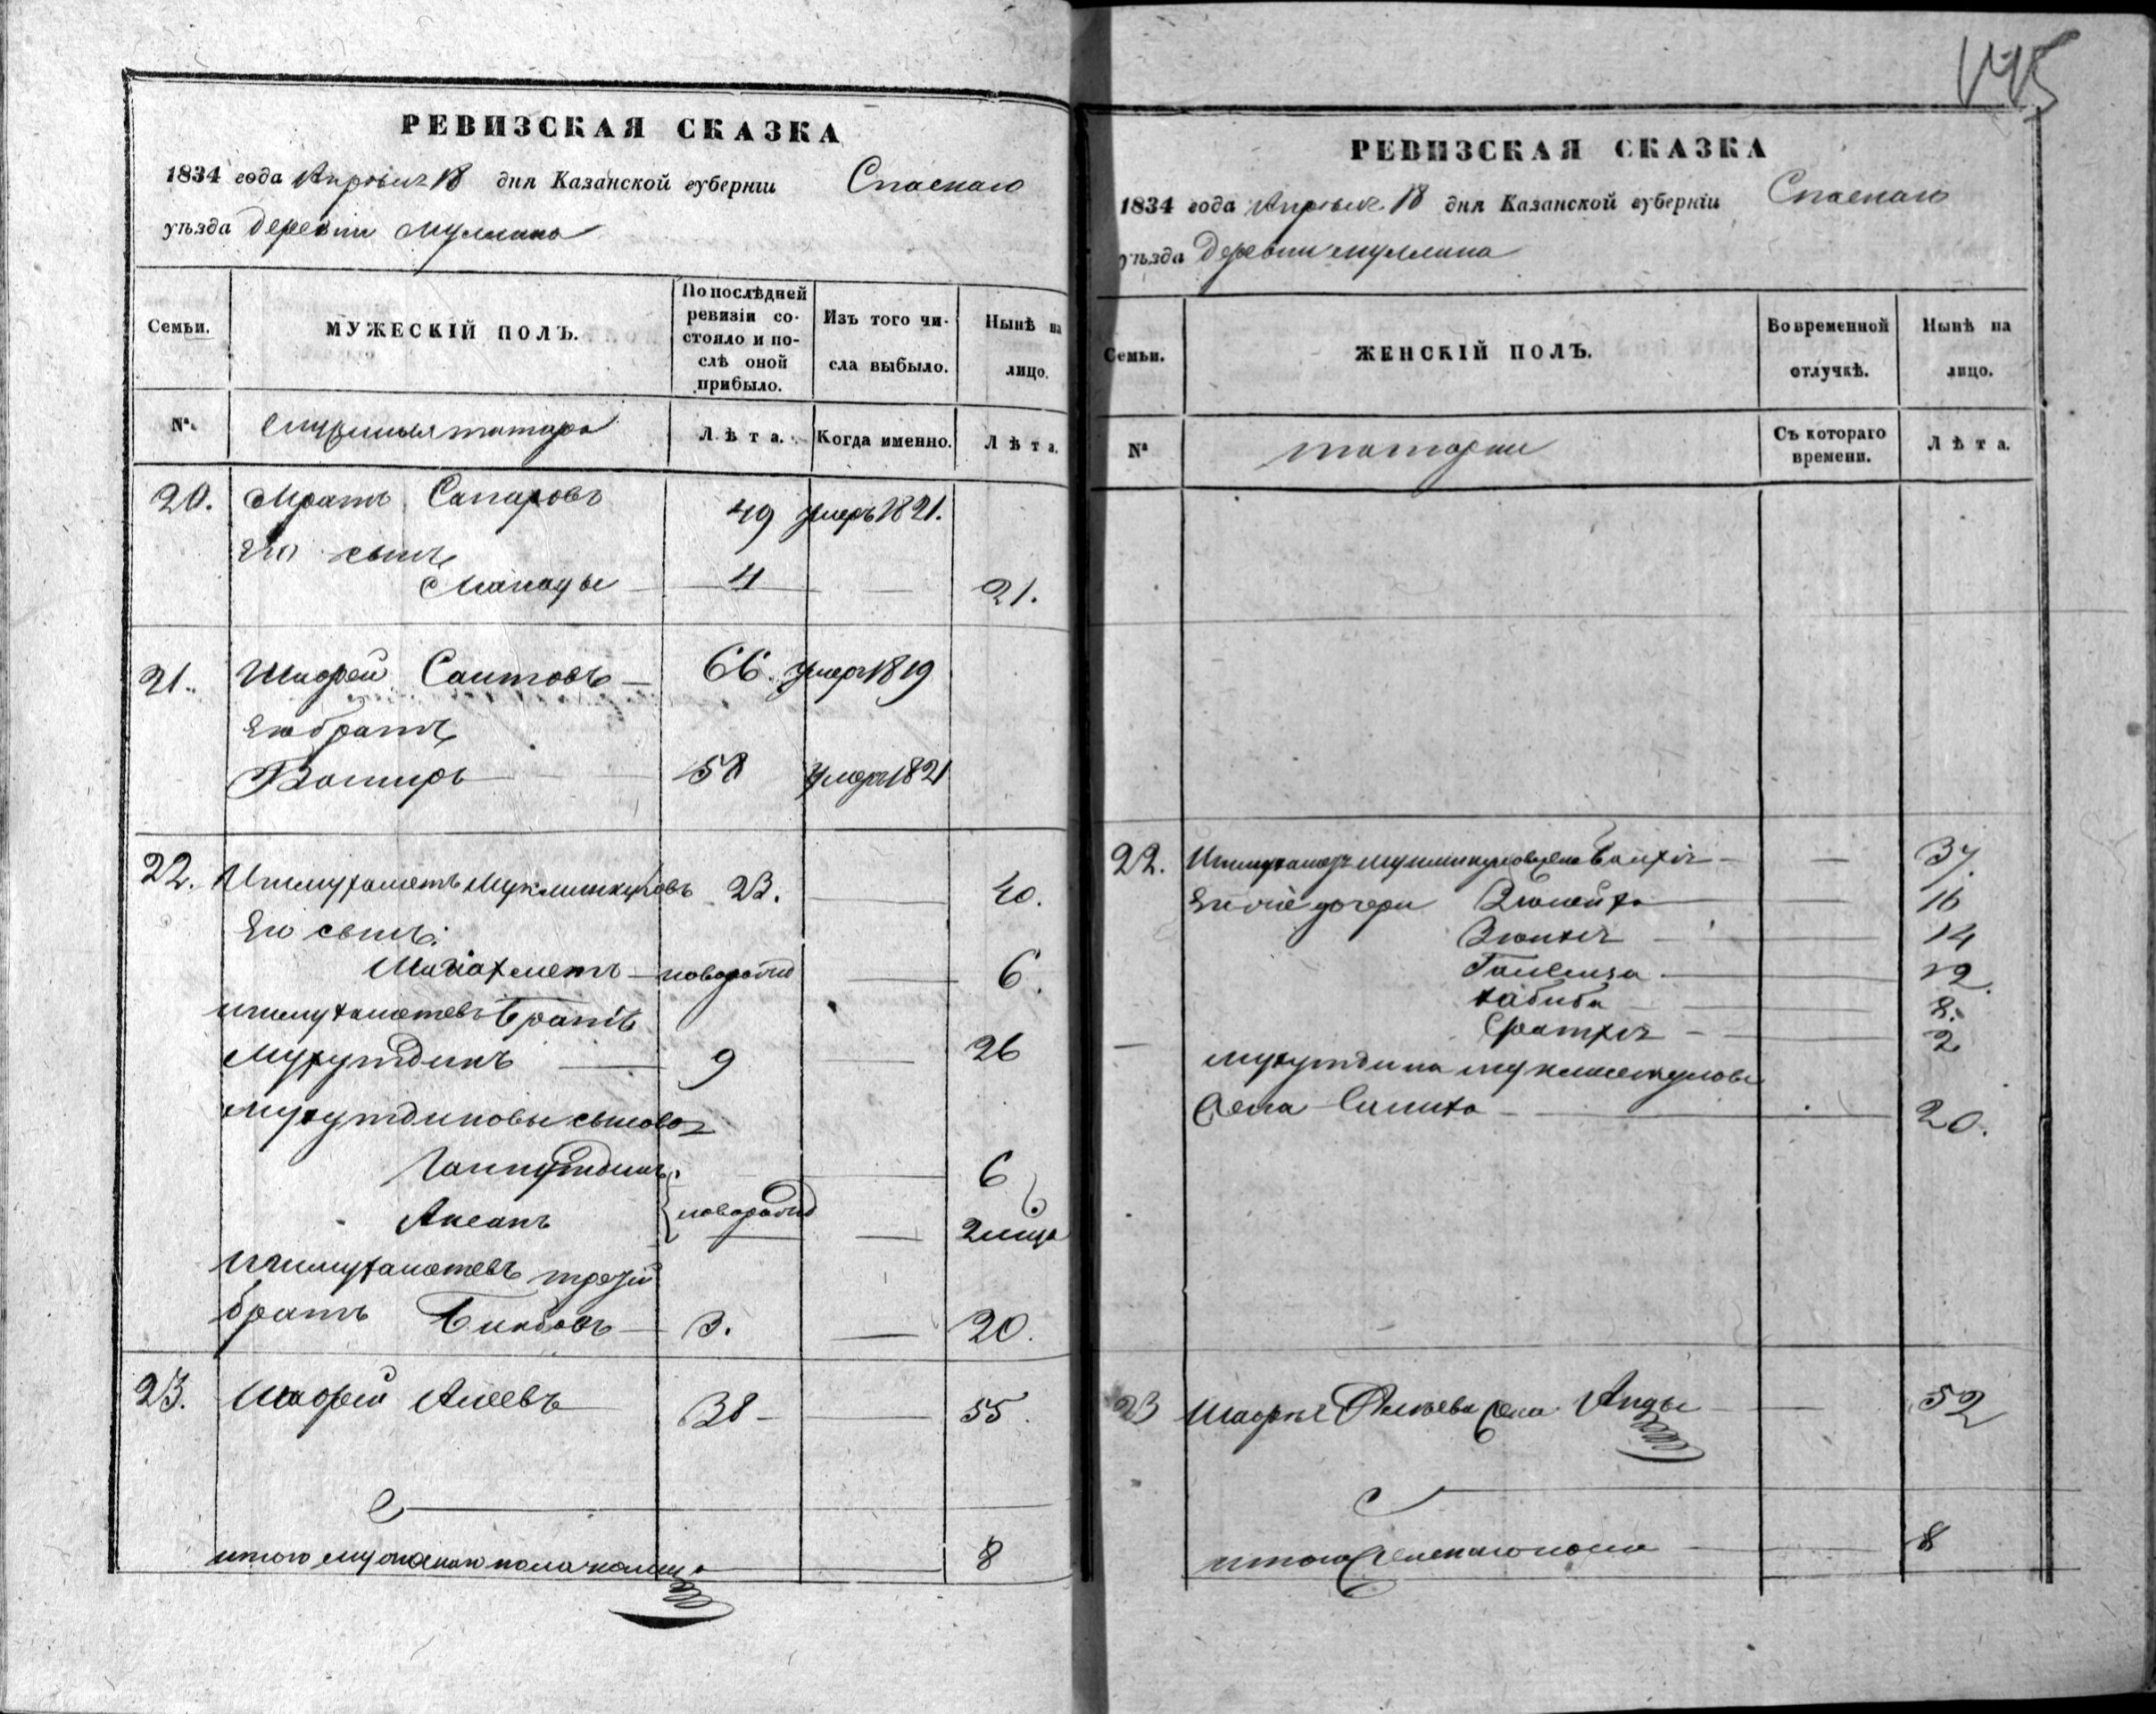 РЕВИЗСКАЯ СКАЗКА
1834 года Апреля 18 дня Казанской губерніи Спаскаго
уѣзда деревни Муллина
Семьи.
МУЖЕСКІЙ ПОЛЪ.
По послѣдней ревизіи состояло и послѣ оной прибыло.
Изъ того числа выбыло.
Нынѣ на лицо.
№.
татара
Лѣта.
Когда именно.
Лѣта.
20. Мратъ Сапаровъ 49 умеръ 1821.
Его сынъ
4 21.
21. Шафей Саитовъ 66. умеръ 1819
Его братъ
Баширъ 58 умеръ 1821
22. Ишмухаметъ Муклишкуловъ 23. 40.
Его сынъ:
Шагіахметъ новорожд 6.
Ишмухаметевъ братъ
Мухутдинъ 9 26
Мухутдиновы сыновья
6
Аксанъ новорожд 2 мца
Ишмухаметевъ третій
братъ 3. 20.
23. Шафей Алеевъ 38 55.
итого мужескаго пола на лицо 8
145
РЕВИЗСКАЯ СКАЗКА
1834 года Апреля 18 дня Казанской губерніи Спаскаго
уѣзда деревни Муллина
Семьи.
ЖЕНСКІЙ ПОЛЪ.
Во временной отлучкѣ.
Нынѣ на лицо.
№
татарки
Съ котораго времени.
Лѣта.
22. Ишмухаметя Муклишкулова жена 37.
Ево дочери Зюлейха 16
14
12.
Хабиба 8.
2
Мухутдина Муклишкулова
жена Салиха 20.
23 Шафея Алкѣева жена Анды 52
итого женскаго пола 8